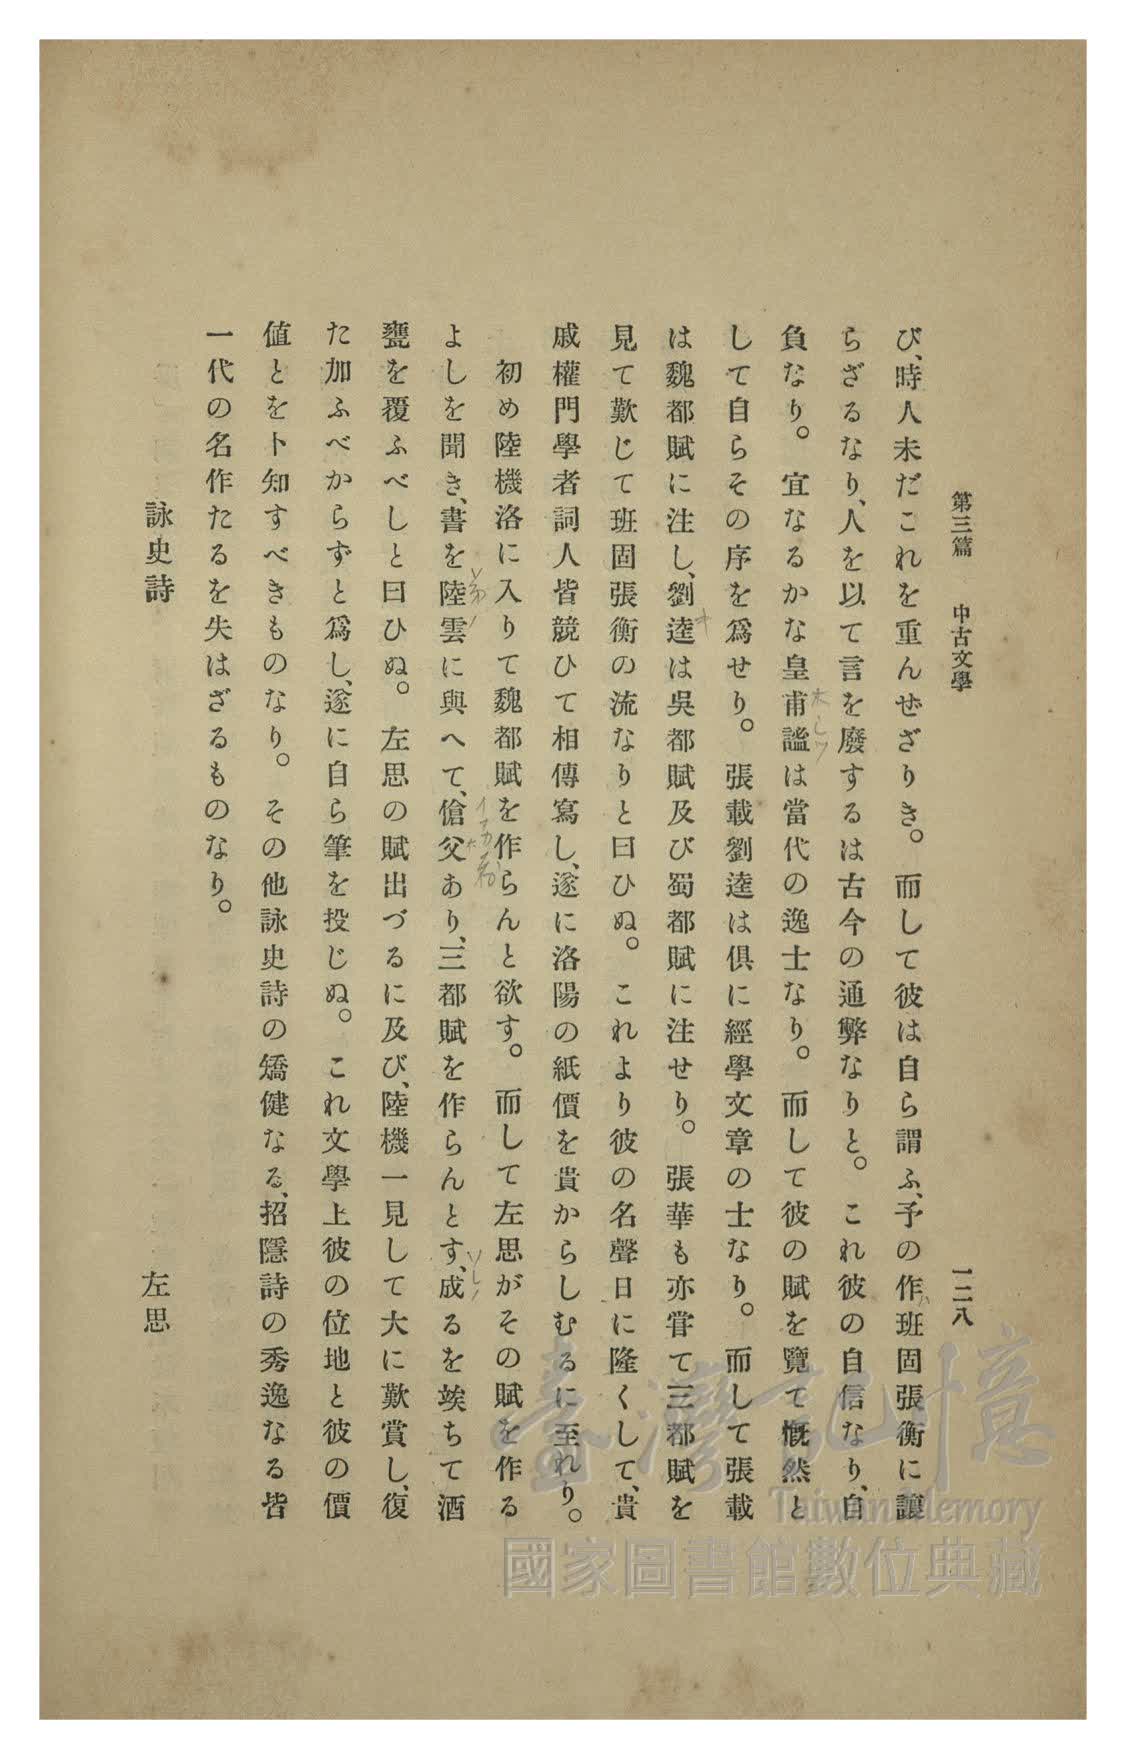 第三篇　中古文學　一二八
び、時人未だこれを重んぜざりき。而して彼は自ら謂ふ、予の作班固張衡に讓
らざるなり、人を以て言を廢するは古今の通弊なりと。これ彼の自信なり、自
負なり。宜なるかな皇甫謐は當代の逸士なり。而して彼の賦を覽て慨然と
して自らその序を爲せり。張載劉逵は俱に經學文章の士なり。而して張載
は魏都賦に注し、劉逵は吳都賦及び蜀都賦に注せり。張華も亦嘗て三都賦を
見て歎じて班固張衡の流なりと曰ひぬ。これより彼の名聲日に隆くして、貴
戚權門學者詞人皆競ひて相傳寫し、遂に洛陽の紙價を貴からしむるに至れり。
初め陸機洛に入りて魏都賦を作らんと欲す。而して左思がその賦を作る
よしを聞き、書を陸雲に與へて、傖父あり、三都賦を作らんとす、成るを竢ちて酒
甕を覆ふべしと曰ひぬ。左思の賦出づるに及び、陸機一見して大に歎賞し、復
た加ふべからずと爲し、遂に自ら筆を投じぬ。これ文學上彼の位地と彼の價
値とを卜知すべきものなり。その他詠史詩の矯健なる、招隱詩の秀逸なる皆
一代の名作たるを失はざるものなり。
詠史詩　左思
臺灣記憶
Taiwan Memory
國家圖書館數位典藏